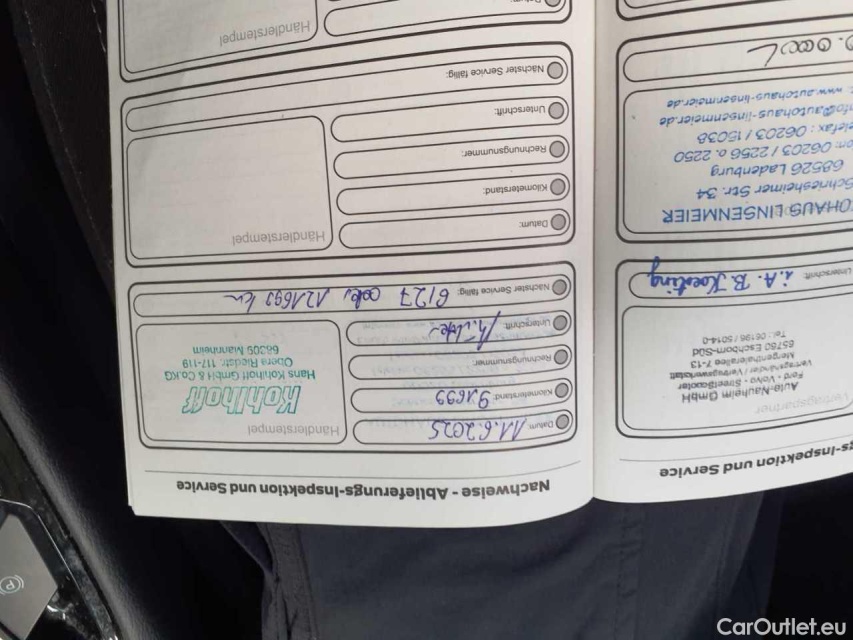 Nachweise - Ablieferungs-Inspektion und Service
Datum: 11.6.2025
Kilometerstand: 91699
Rechnungsnummer:
Unterschrift:
Nächster Service fällig: 6/27 oder 121699 km
Händlerstempel
Kohlhoff
Hans Kohlhoff GmbH & Co.KG
Obere Riedstr. 117-119
68309 Mannheim
Datum:
Kilometerstand:
Rechnungsnummer:
Unterschrift:
Nächster Service fällig:
Händlerstempel
Datum:
Händlerstempel
gs-Inspektion und Service
Vertragspartner
Auto-Nauheim GmbH
Ford · Volvo · StreetScooter
Vertragshändler / Vertragswerkstatt
Mergenthalerallee 7-13
65760 Eschborn-Süd
Tel.: 06196 / 5014-0
Unterschrift:
i.A. B.
OHAUS LINSENMEIER
Schriesheimer Str. 34
68526 Ladenburg
on: 06203 / 2256 o. 2250
elefax: 06203 / 15038
nfo@autohaus-linsenmeier.de
: www.autohaus-linsenmeier.de
P
CarOutlet.eu